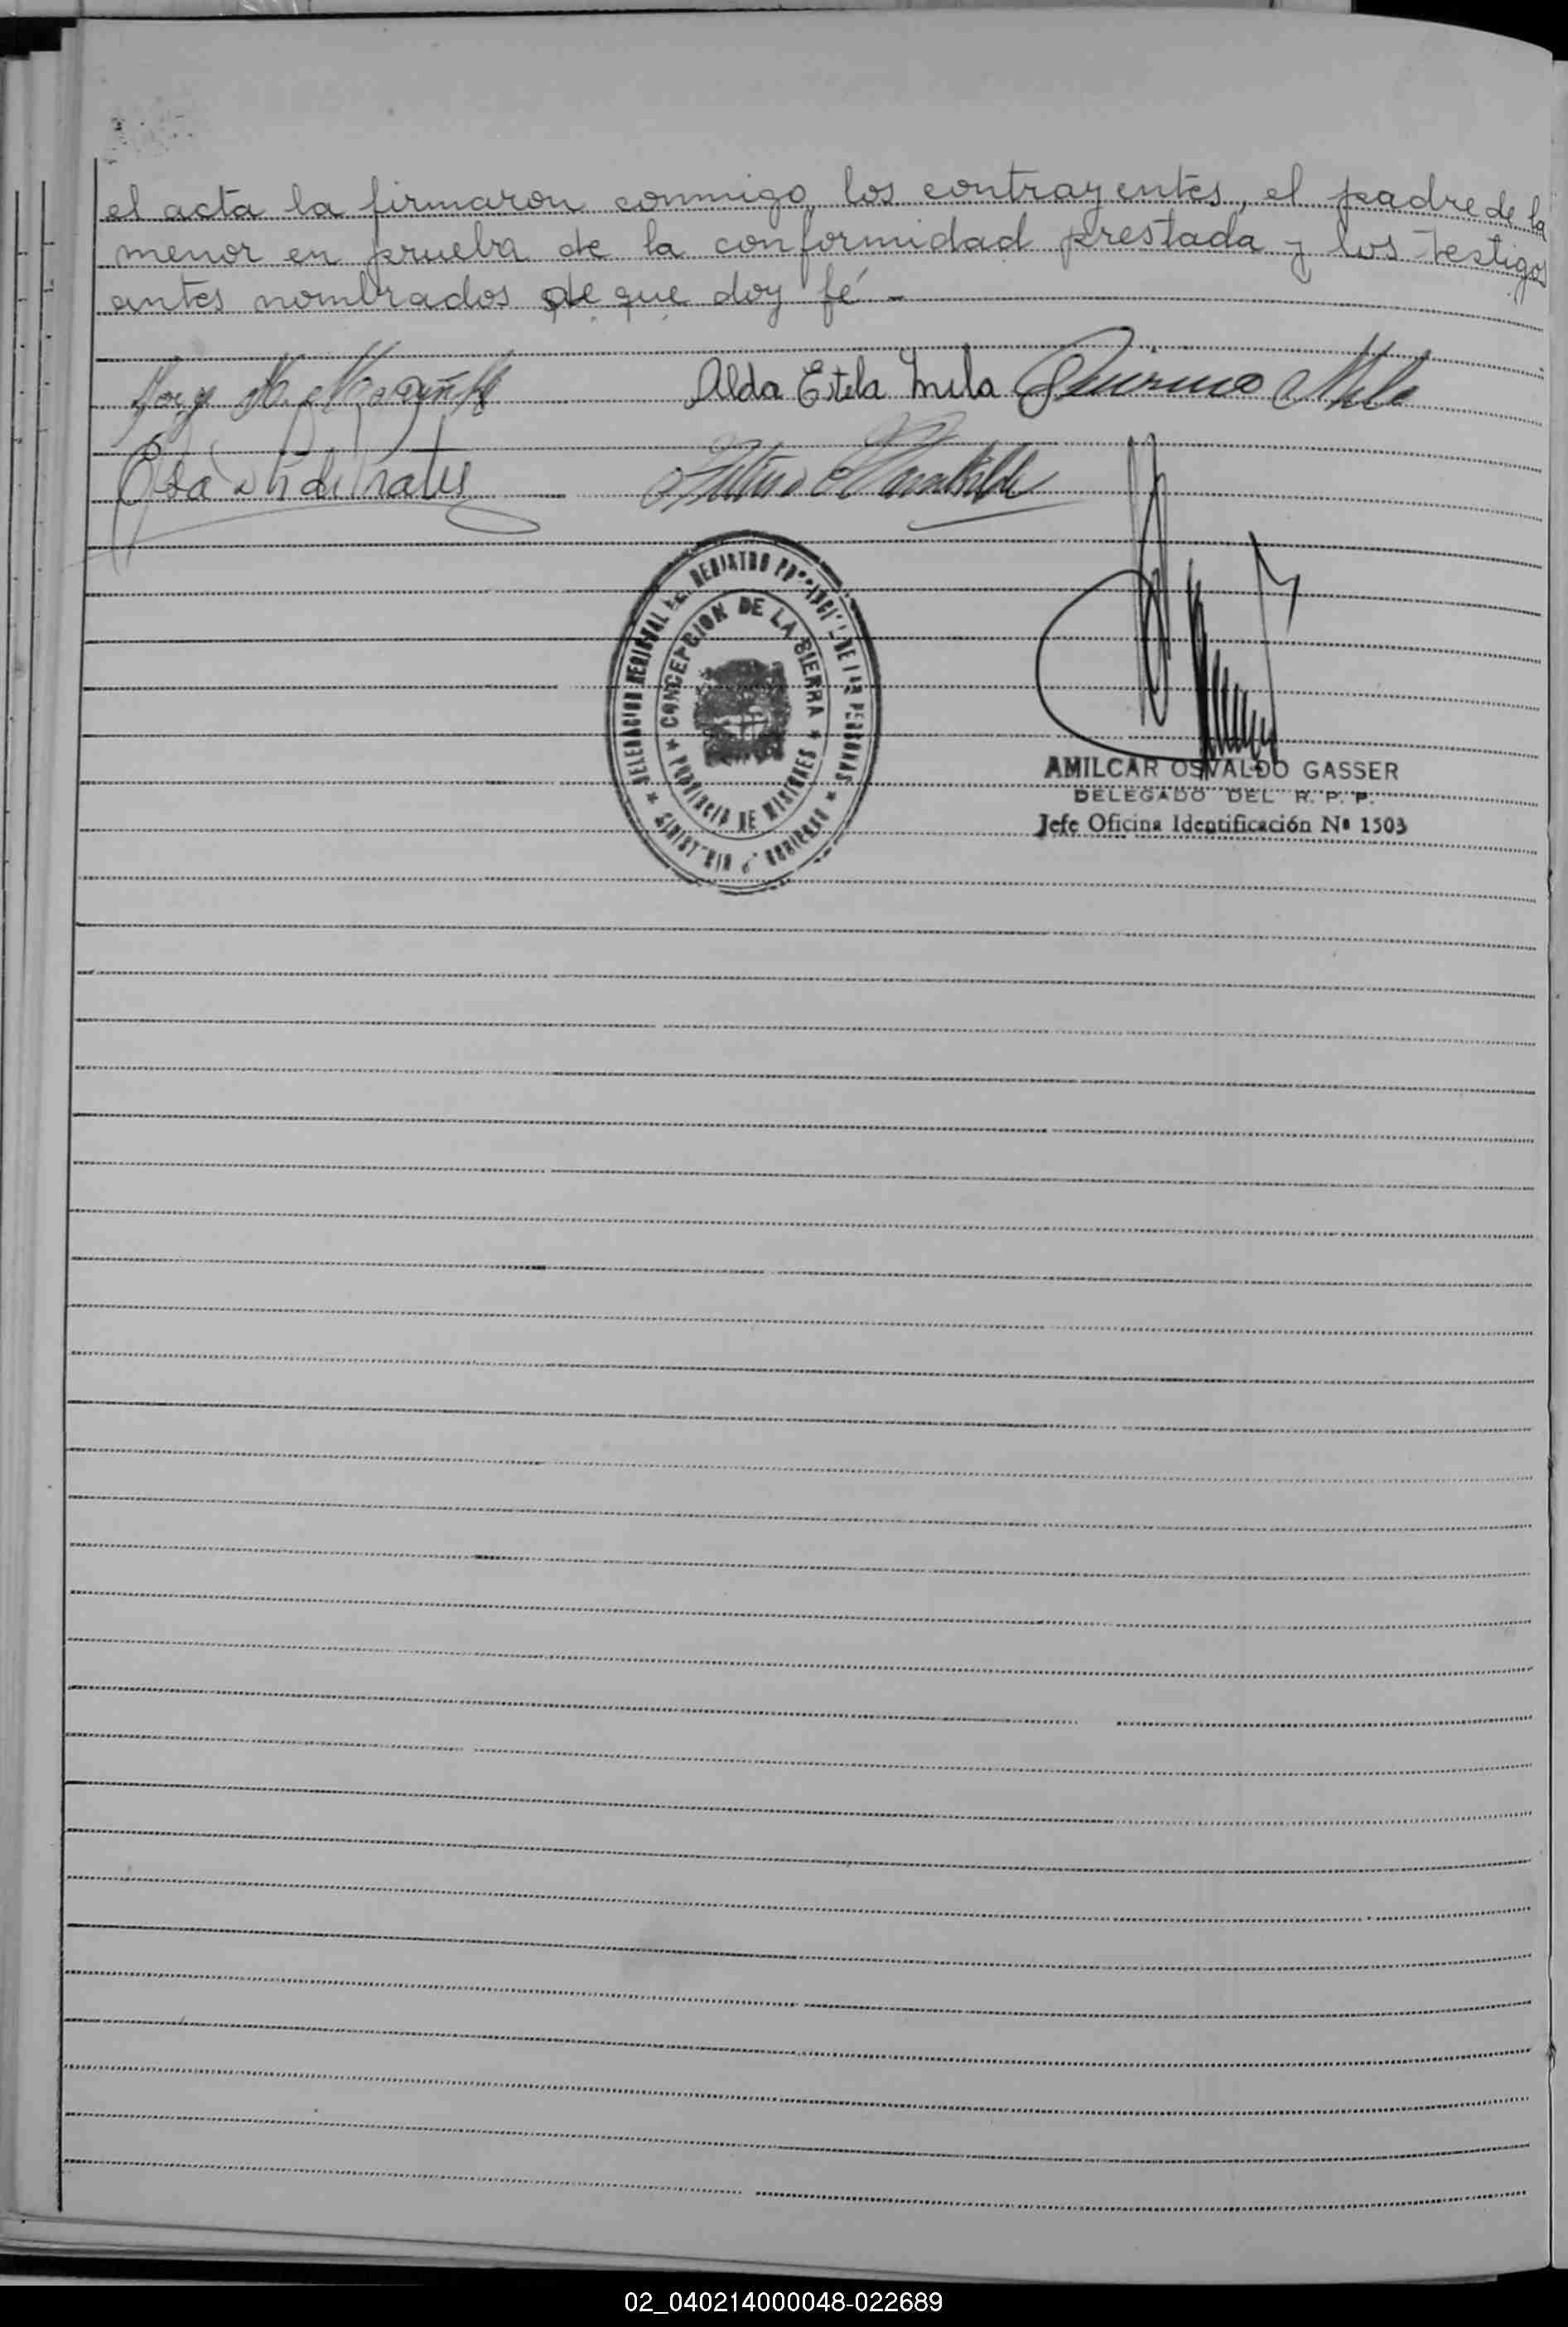 el acta la firmaron conmigo los contrayentes, el padre de la
menor en prueba de la conformidad prestada y los testigos
antes nombrados de que doy fé -
Alda Estela Mila
DELEGACION REGIONAL DEL REGISTRO PROVINCIAL DE LAS PERSONAS
CONCEPCION DE LA SIERRA
PROVINCIA DE MISIONES
AMILCAR OSVALDO GASSER
DELEGADO DEL R. P. P.
Jefe Oficina Identificación Nº 1503
02_040214000048-022689